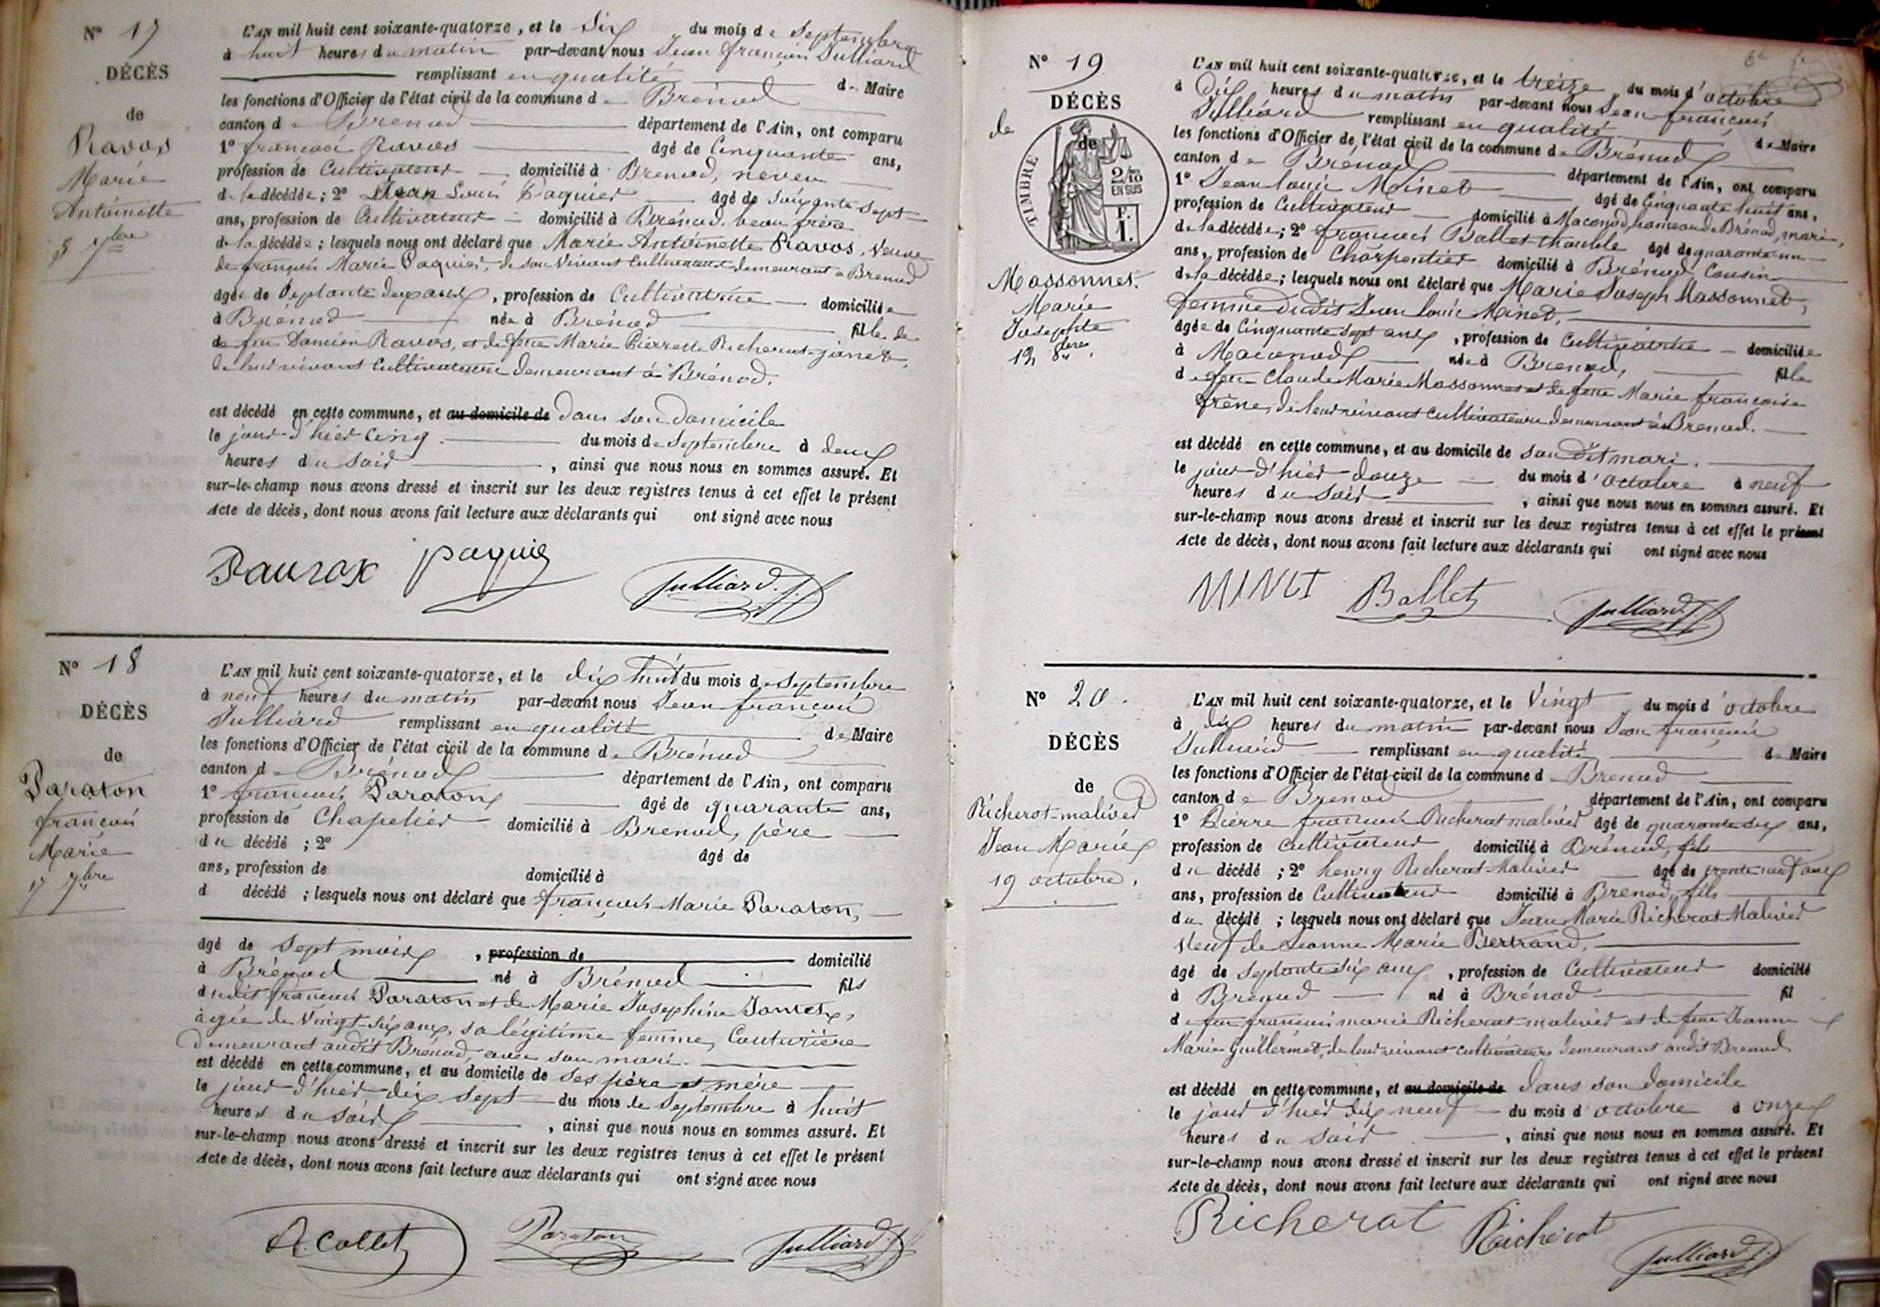 N° 17
DÉCÈS
de
Ravos
Marie
Antoinette
5 7bre
L'AN mil huit cent soixante-quatorze, et le Six du mois de Septembre
à huit heures du matin par-devant nous Jean françois Julliard
remplissant en qualité de Maire
les fonctions d'Officier de l'état civil de la commune de Brénod
canton de Brenod département de l'Ain, ont comparu
1° françois Ravos âgé de Cinquante ans,
profession de Cultivateur domicilié à Brenod, neveu
de la décédée; 2° Jean Louis Paquier âgé de Soixante Sept
ans, profession de Cultivateur domicilié à Brénod beau frère
de la décédée; lesquels nous ont déclaré que Marie Antoinette Ravos, Veuve
de françois Marie Paquier, de son vivant Cultivateur demeurant a Brenod
âgée de Septante deux ans, profession de Cultivatrice domiciliée
à Brénod née à Brénod fille de
de feu Damien Ravos, et de feue Marie Pierrette Richerot-janet,
de leur vivant Cultivateurs demeurant à Brénod.
est décédé en cette commune, et au domicile de dans son domicile
le jour d'hier Cinq du mois de Septembre à deux
heures du Soir, ainsi que nous nous en sommes assuré. Et
sur-le-champ nous avons dressé et inscrit sur les deux registres tenus à cet effet le présent
Acte de décès, dont nous avons fait lecture aux déclarants qui ont signé avec nous
paquie Julliard. J.
N° 18
DÉCÈS
de
Paraton
françois
Marie
17 7bre
L'AN mil huit cent soixante-quatorze, et le dix huit du mois de Septembre
à neuf heures du matin par-devant nous Jean françois
Julliard remplissant en qualité de Maire
les fonctions d'Officier de l'état civil de la commune de Brénod
canton de Brénod département de l'Ain, ont comparu
1° françois Paraton âgé de quarante ans,
profession de Chapelier domicilié à Brenod, père
du décédé; 2° âgé de
ans, profession de domicilié à
d décédé; lesquels nous ont déclaré que françois Marie Paraton,
âgé de Sept mois, profession de domicilié
à Brénod né à Brénod fils
dudit françois Paraton et de Marie Josephine
agée de Vingt-Six ans, sa légitime femme, Couturière
demeurant audit Brénod, avec son mari.
est décédé en cette commune, et au domicile de ses père et mère
le jour d'hier dix sept du mois de Septembre à huit
heures du Soir, ainsi que nous nous en sommes assuré. Et
sur-le-champ nous avons dressé et inscrit sur les deux registres tenus à cet effet le présent
Acte de décès, dont nous avons fait lecture aux déclarants qui ont signé avec nous
A. Collet Paraton Julliard. J.
N° 19
DÉCÈS
de
de
TIMBRE
2/10
EN SUS
F.
1.
Massonnet
Marie
Josephte
12 8bre
L'AN mil huit cent soixante-quatorze, et le treize du mois d'octobre
à dix heures du matin par-devant nous Jean françois
Julliard remplissant en qualité de Maire
les fonctions d'Officier de l'état civil de la commune de Brénod
canton de Brenod département de l'Ain, ont comparu
1° Jean louis Minet âgé de Cinquante huit ans,
profession de Cultivateur domicilié à Macconod, hameau de Brénod, mari,
de la décédée; 2° françois Ballet âgé de quarante un
ans, profession de Charpentier domicilié à Brénod Cousin
de la décédée; lesquels nous ont déclaré que Marie Joseph Massonnet,
femme dudit Jean louis Minet,
âgée de Cinquante Sept ans, profession de Cultivatrice domiciliée
à Macconod née à Brenod, fille
de feu Claude Marie Massonnet et de feue Marie françoise
frène, de leur vivant cultivateurs demeurant à Brenod.
est décédé en cette commune, et au domicile de son dit mari.
le jour d'hier douze du mois d'octobre à neuf
heures du Soir, ainsi que nous nous en sommes assuré. Et
sur-le-champ nous avons dressé et inscrit sur les deux registres tenus à cet effet le présent
Acte de décès, dont nous avons fait lecture aux déclarants qui ont signé avec nous
Ballet Julliard J
N° 20.
DÉCÈS
de
Richerot-maliver
Jean Marie
19 octobre.
L'AN mil huit cent soixante-quatorze, et le Vingt du mois d'octobre
à dix heures du matin par-devant nous Jean françois
Julliard remplissant en qualité de Maire
les fonctions d'Officier de l'état civil de la commune de Brenod
canton de Brenod département de l'Ain, ont comparu
1° Pierre françois Richerot malivier âgé de quarante six ans,
profession de Cultivateur domicilié à Brénod, fils
du décédé; 2° henry Richerot Malivier âgé de trente neuf ans
ans, profession de Cultivateur domicilié à Brenod, fils
du décédé; lesquels nous ont déclaré que Jean Marie Richerot Malivier
Veuf de Jeanne Marie Bertrand,
âgé de Septante Six ans, profession de Cultivateur domicilié
à Brenod né à Brénod fil
de feu françois marie Richerot malivier et de feue Jeanne
Marie Guillermet, de leur vivant cultivateurs demeurant audit Brenod
est décédé en cette commune, et au domicile de dans son domicile
le jour d'hier dix neuf du mois d'octobre à onze
heures du Soir, ainsi que nous nous en sommes assuré. Et
sur-le-champ nous avons dressé et inscrit sur les deux registres tenus à cet effet le présent
Acte de décès, dont nous avons fait lecture aux déclarants qui ont signé avec nous
Richerot Richerot Julliard. J.